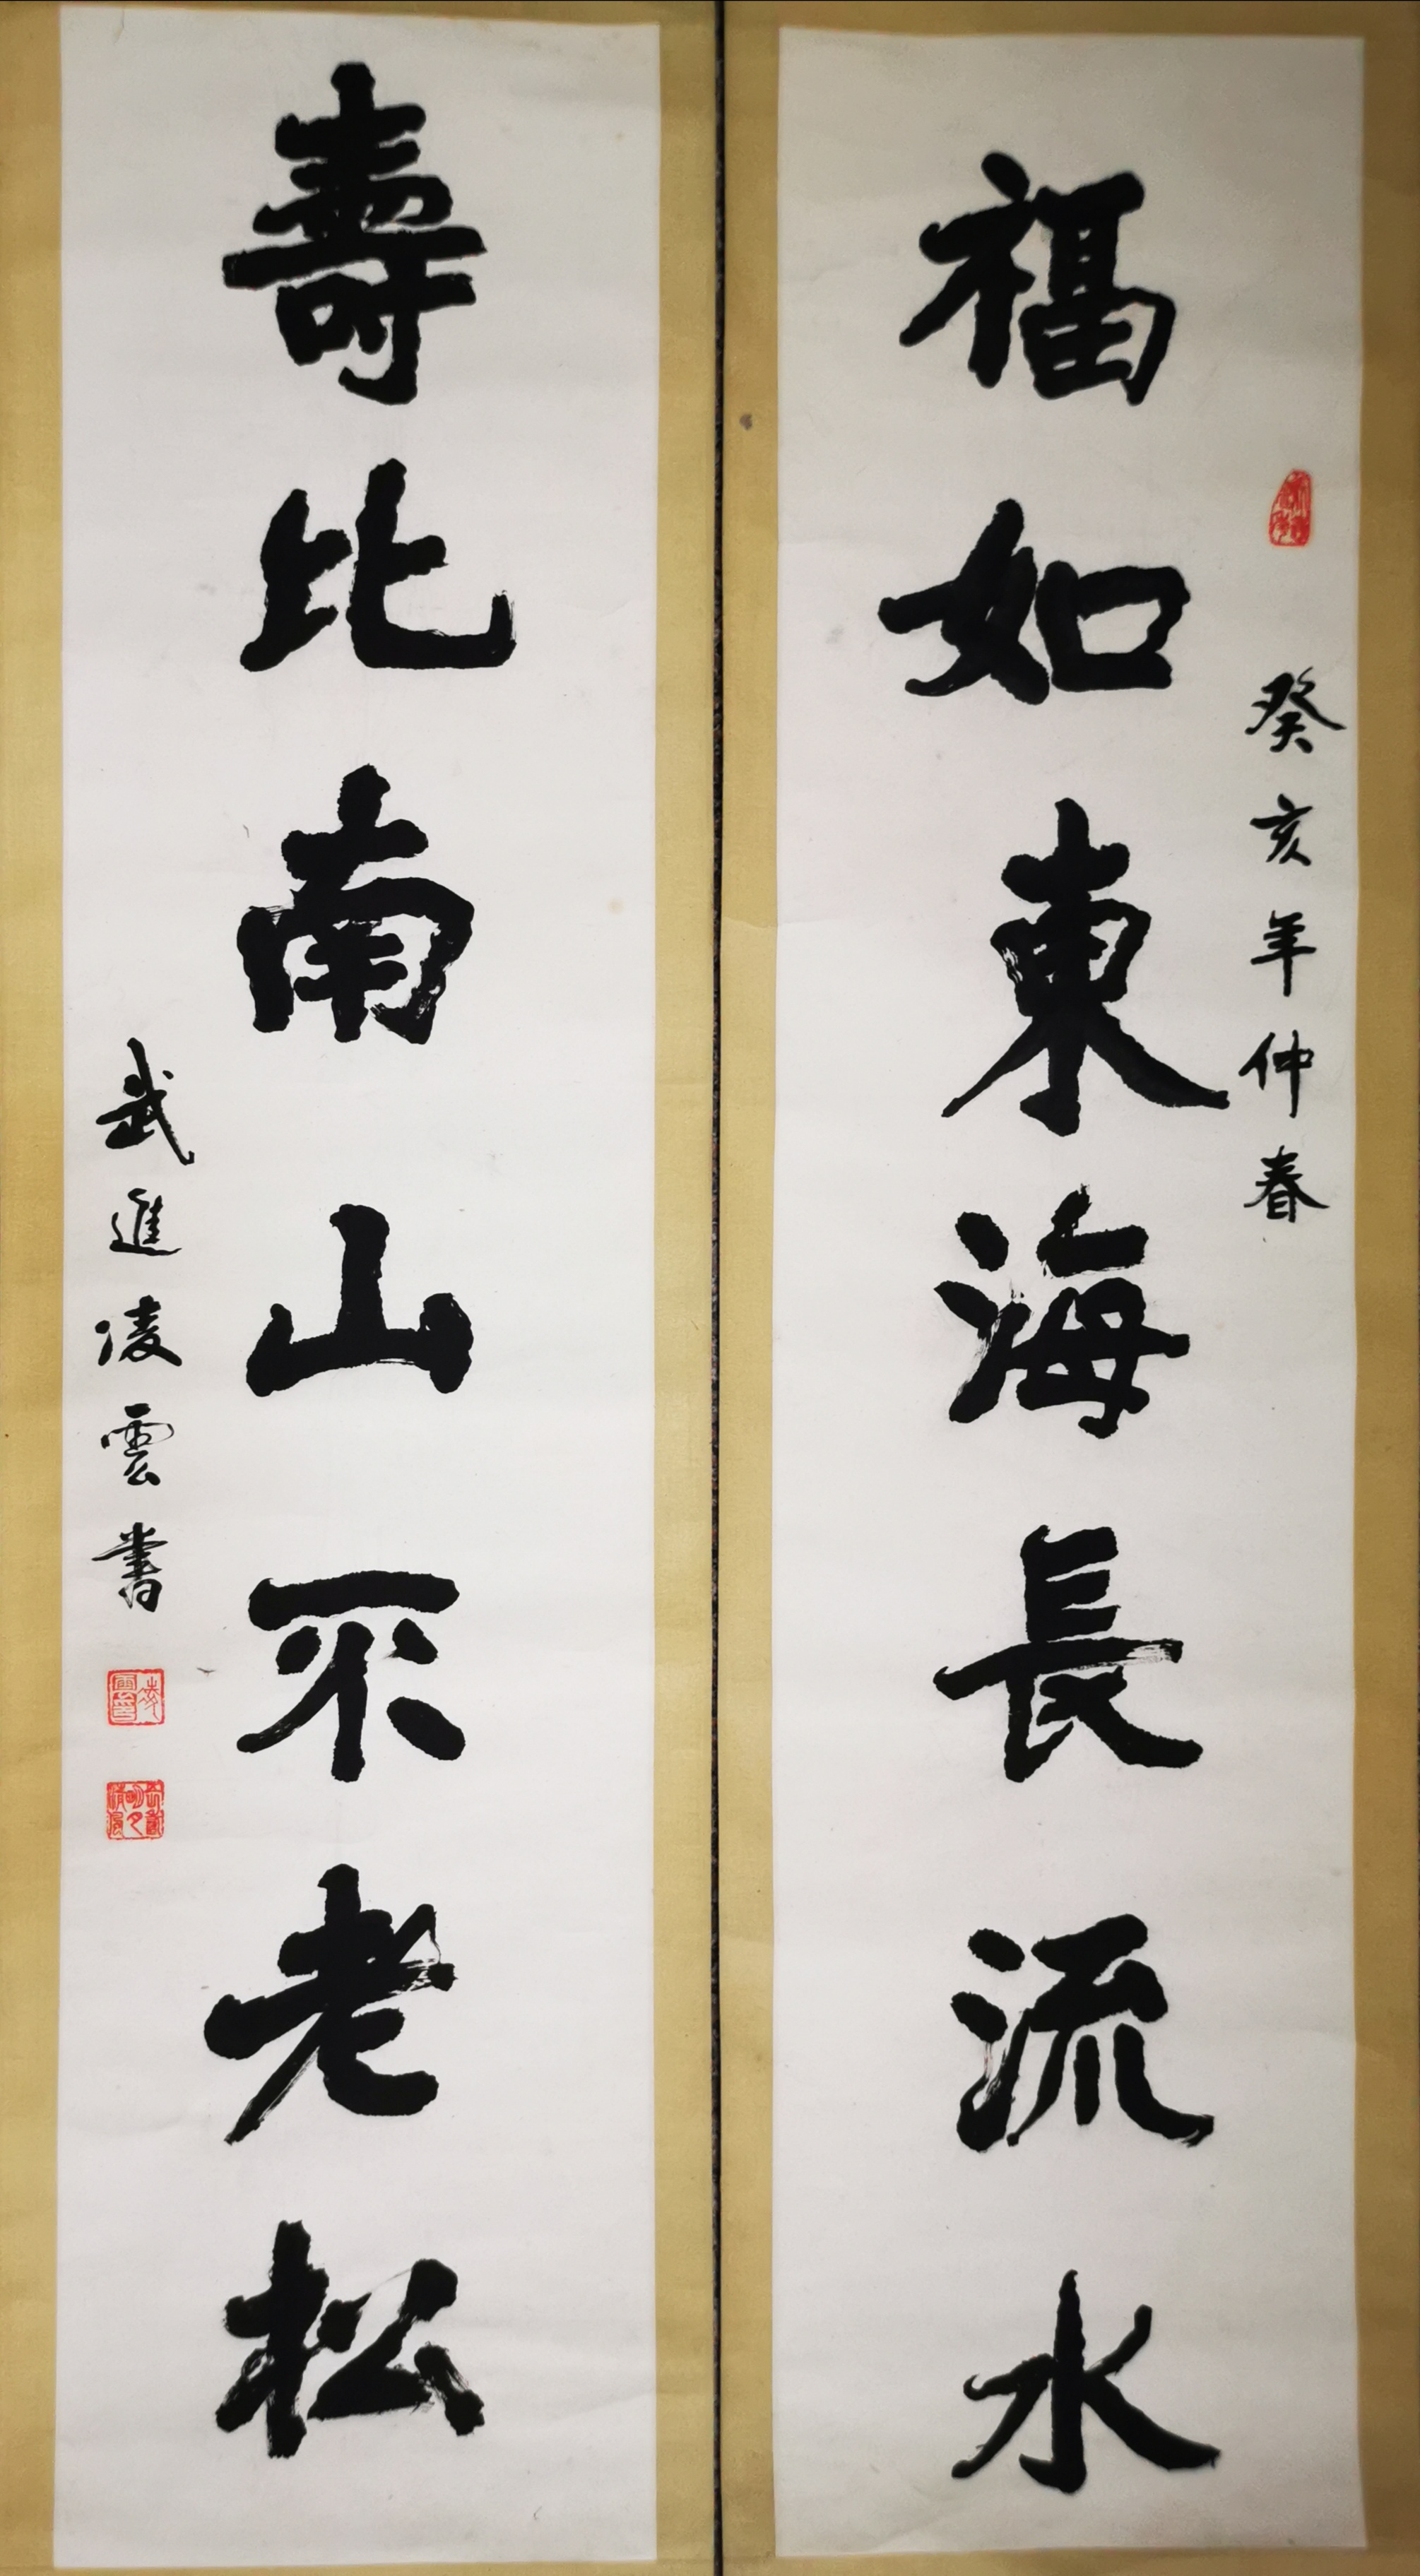 癸亥年仲春
福如東海長流水
壽比南山不老松
武進凌雲書